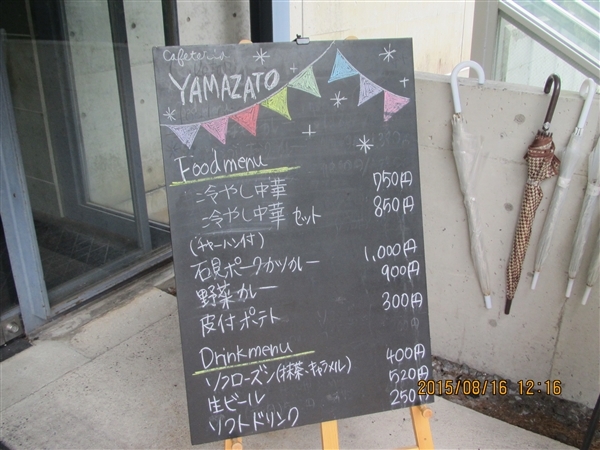 Cafeteria
YAMAZATO
Food menu
冷やし中華 750円
冷やし中華 セット 850円
(チャーハン付)
石見ポークカツカレー 1,000円
野菜カレー 900円
皮付ポテト 300円
Drink menu
ソフローズン(抹茶・キャラメル) 400円
生ビール 520円
ソフトドリンク 250円
2015/08/16 12:16